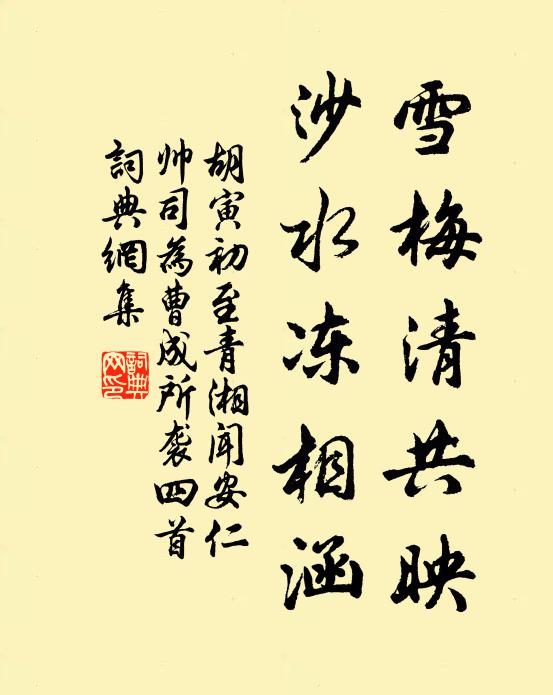 雪梅清共映
沙水冻相涵
胡寅初至青湘闻安仁
帅司為曹成所袭四首
詞典網集
詞典網印